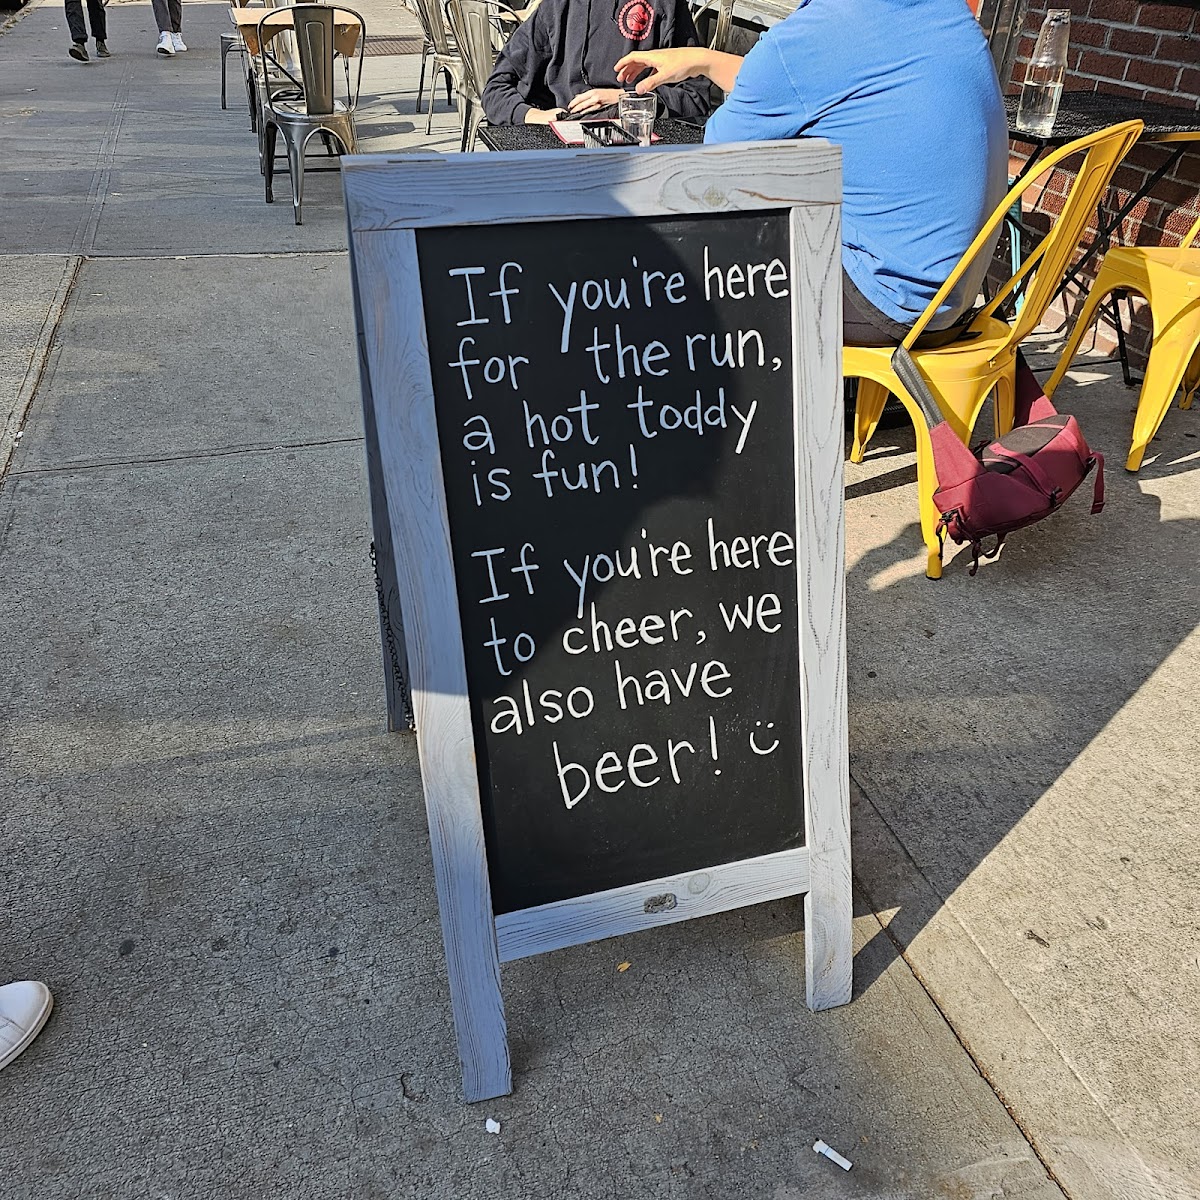 If you're here
for the run,
a hot toddy
is fun!
If you're here
to cheer, we
also have
beer! :)